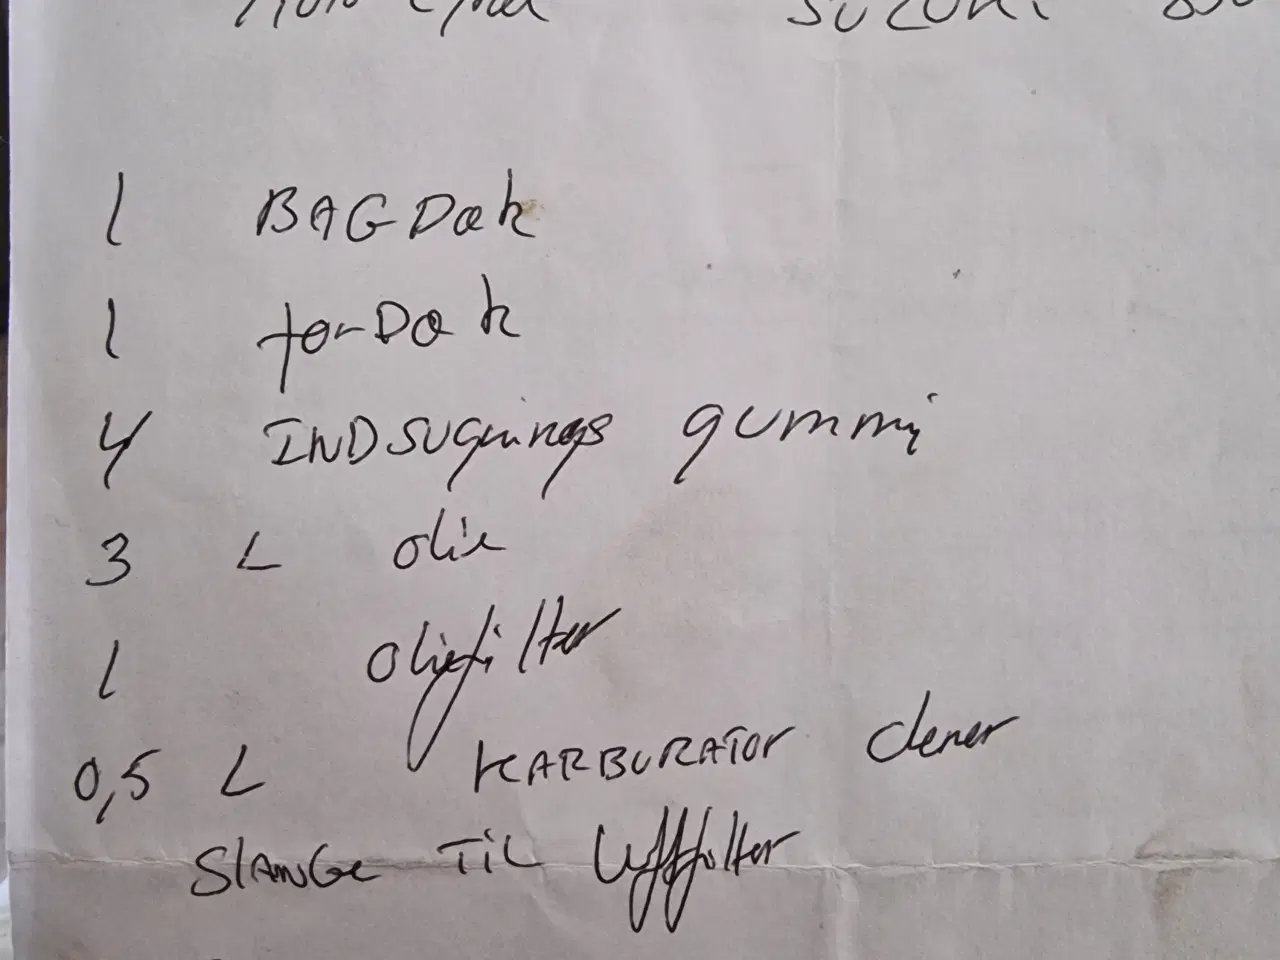 SUZUKI
1 BAGDæk
1 forDæk
4 INDSugnings gummi
3 L olie
1 Oliefilter
0,5 L KARBURATOR clener
SLANGE TiL luftfilter